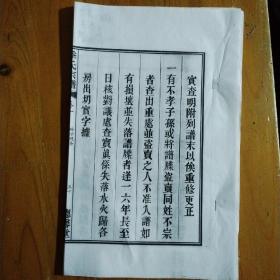 實查明附列譜末以俟重修更正
一有不孝子孫或將譜牒盜賣同姓不宗
者查出重處並盜賣之人不准入譜如
有損壞並失落譜牒者逢一六年長至
日核對議處查實眞係失落水火歸各
房出切實字據
氏宗譜